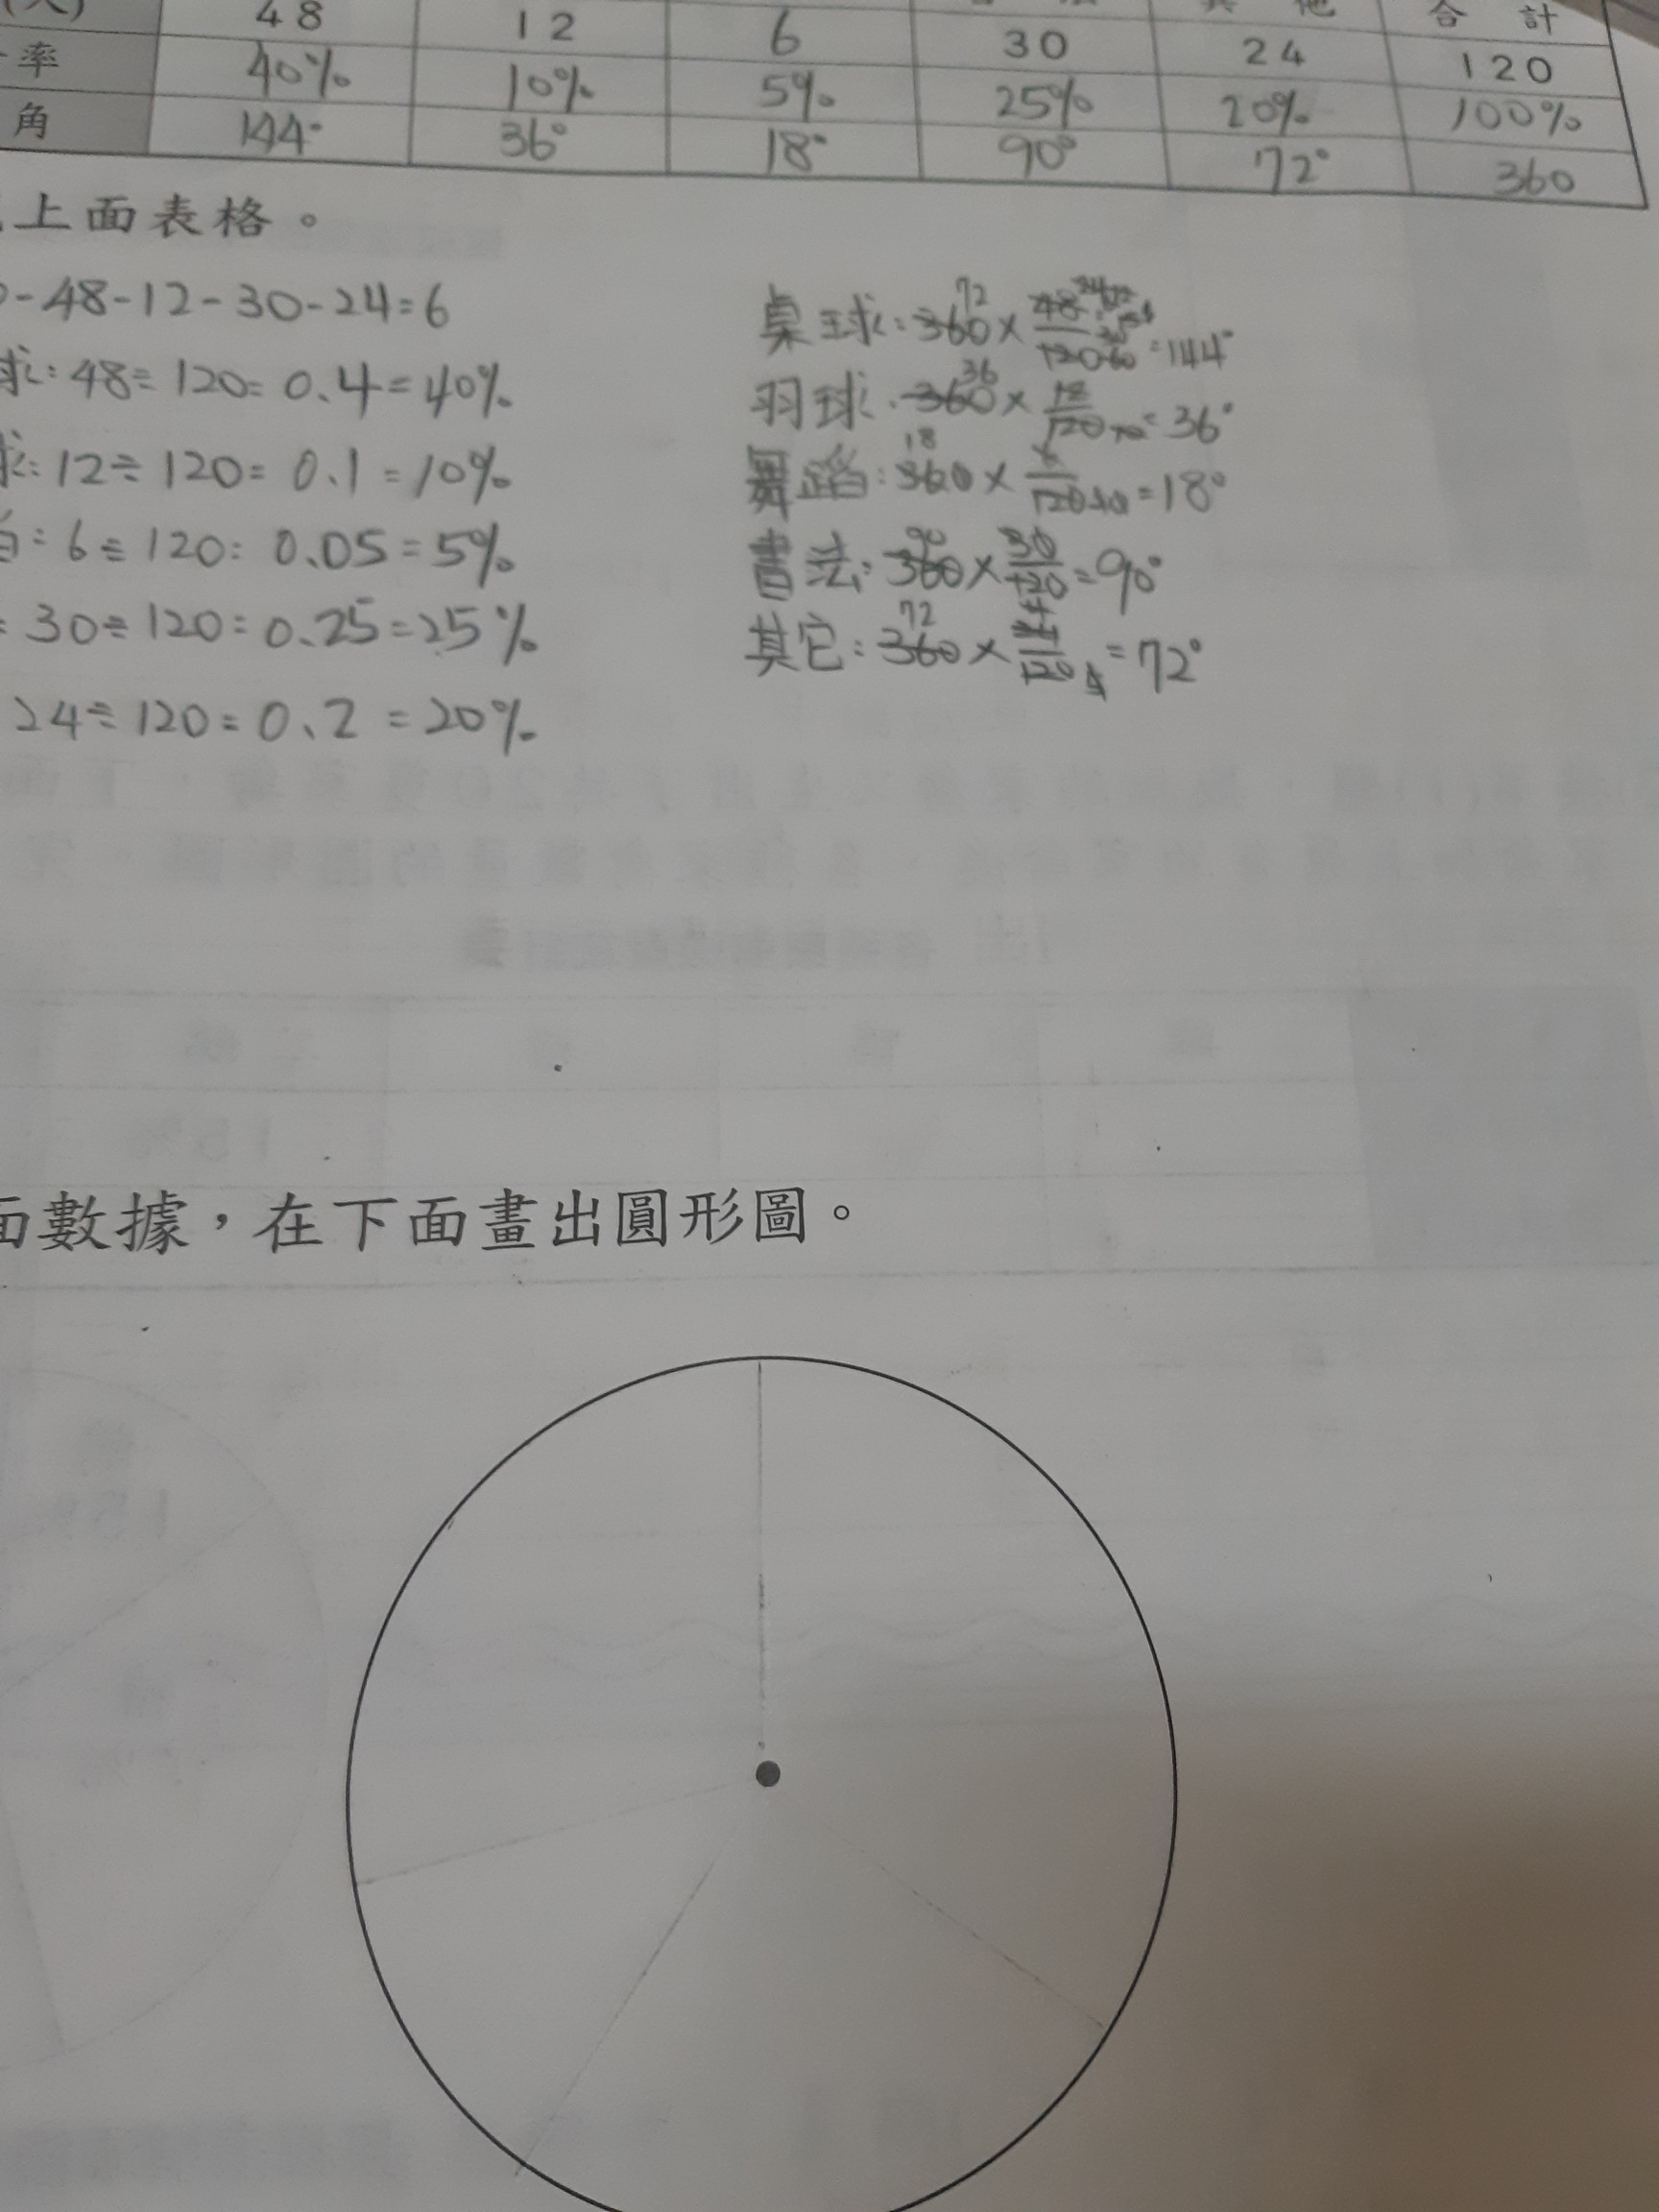 48 12 6 30 24 120
率 40% 10% 5% 25% 20% 100%
角 144° 36° 18° 90° 72° 360
合 計
上面表格。
-48-12-30-24=6
球:48÷120=0.4=40%
球:12÷120=0.1=10%
:6÷120=0.05=5%
:30÷120=0.25=25%
24÷120=0.2=20%
桌球:360× =144°
羽球:360×12/120=36°
舞蹈:360×6/120=18°
書法:360×30/120=90°
其它:360×24/120=72°
面數據,在下面畫出圓形圖。